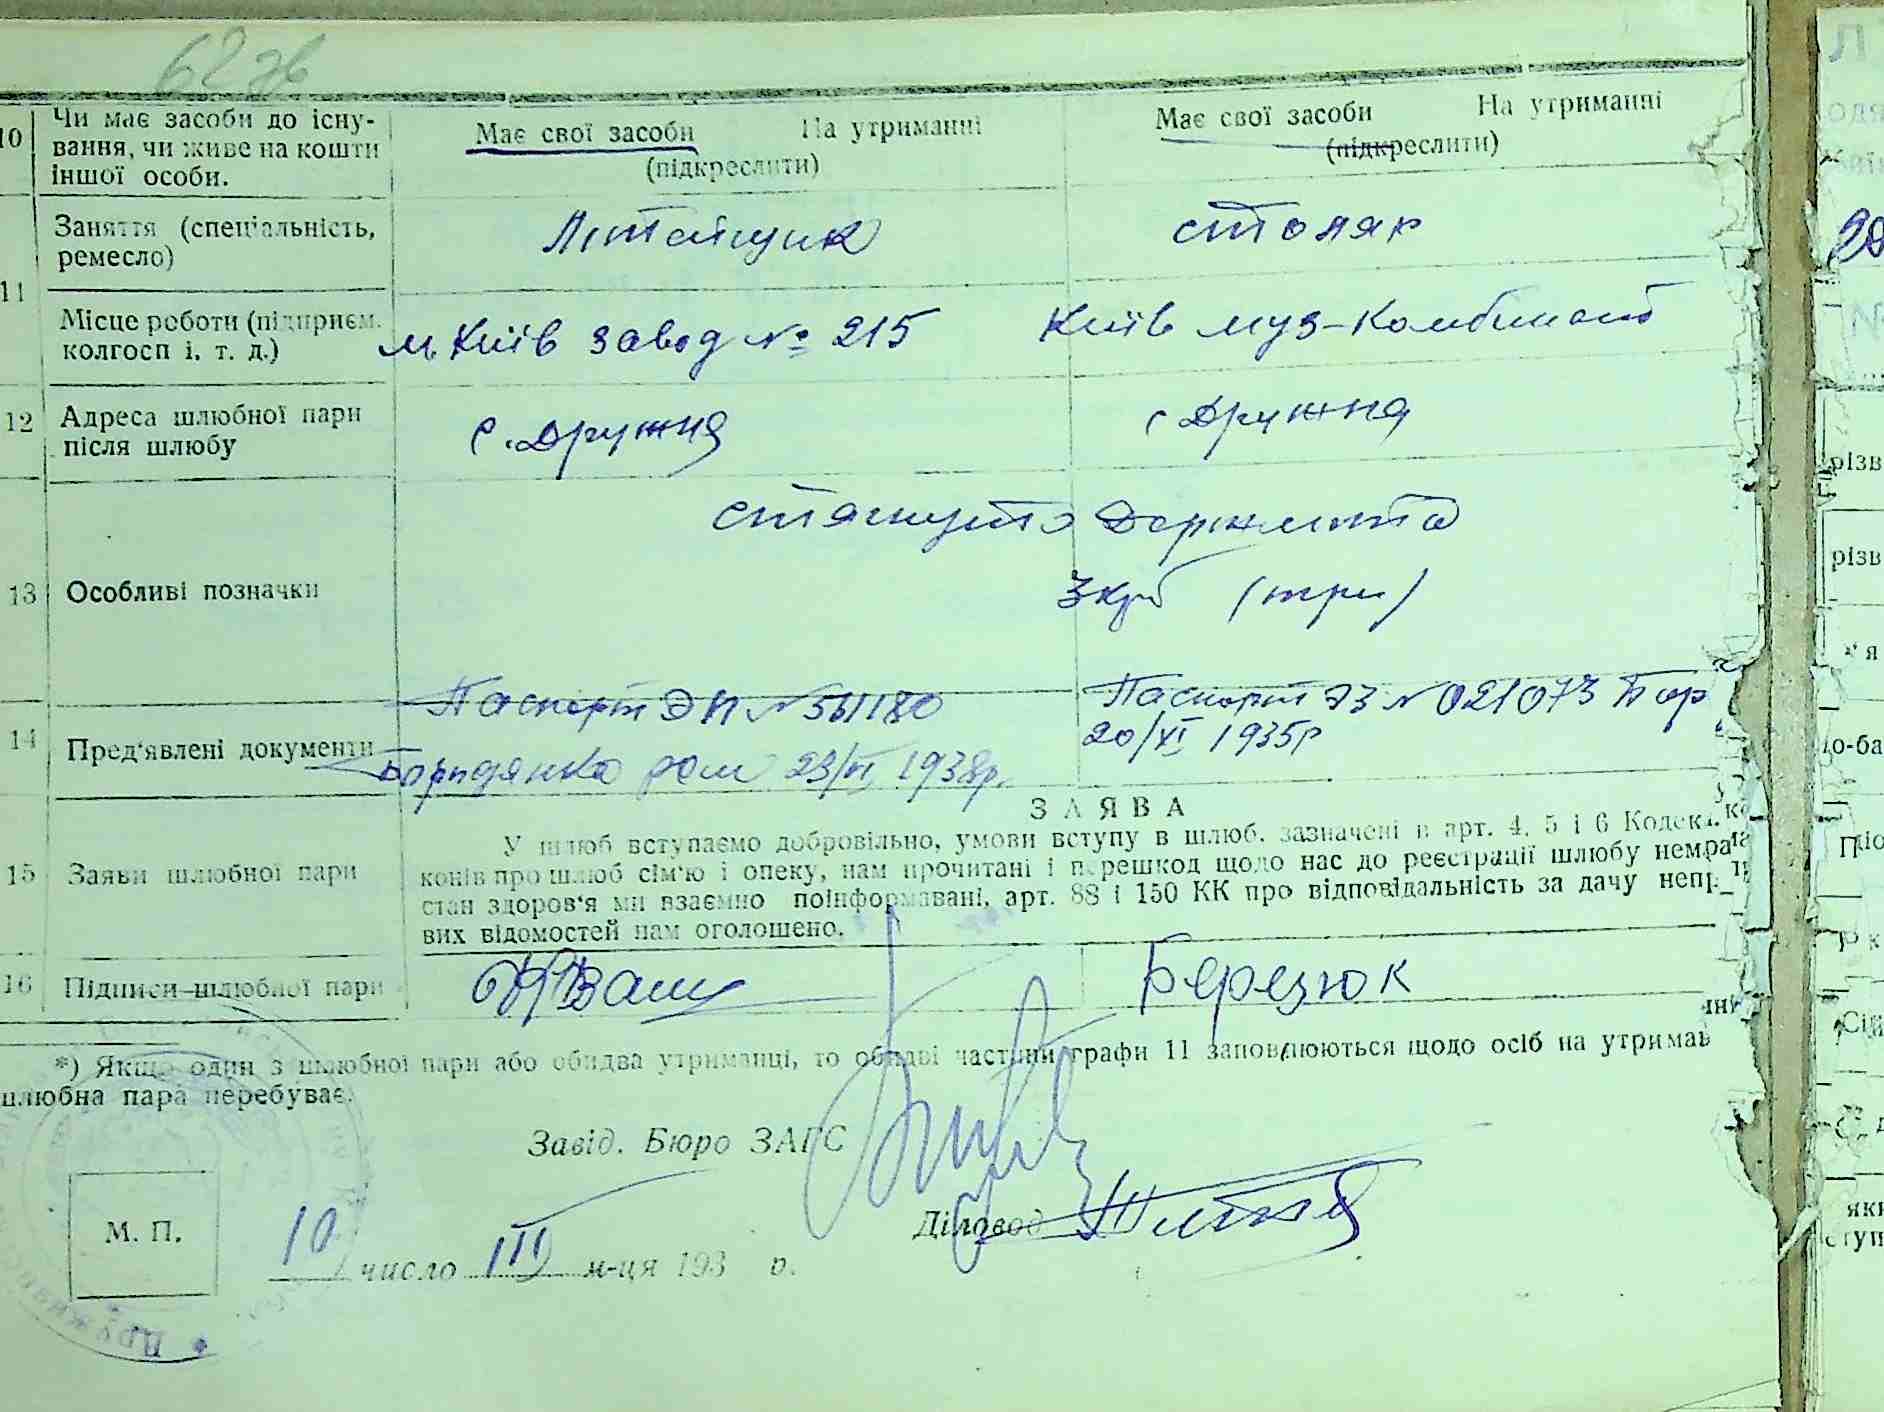 62 зв
10 Чи має засоби до існу-
вання, чи живе на кошти
іншої особи.
Має свої засоби На утриманні
(підкреслити)
Має свої засоби На утриманні
(підкреслити)
11 Заняття (спеціальність,
ремесло)
столяр
Місце роботи (підприєм.
колгосп і. т. д.)
м. Київ завод № 215
Київ муз-комбинат
12 Адреса шлюбної пари
після шлюбу
с. Дружня
с Дружня
13 Особливі позначки
стягнуто Держмита
3 крб (три)
14 Пред'явлені документи
Паспорт ЭП № 561180
Бородянка 23/VI 1938р.
Паспорт ЭЗ № 021073 Бор
20/XI 1935р
15 Заяви шлюбної пари
ЗАЯВА
У шлюб вступаємо добровільно, умови вступу в шлюб. зазначені в арт. 4, 5 і 6 Кодек.
конів про шлюб сім'ю і опеку, нам прочитані і перешкод щодо нас до реєстрації шлюбу нема
стан здоров'я ми взаємно поінформавані, арт. 88 і 150 КК про відповідальність за дачу непр
вих відомостей нам оголошено.
16 Підписи шлюбної пари
Березюк
*) Якщо один з шлюбної пари або обидва утриманці, то обидві частини графи 11 заповнюються щодо осіб на утриман
шлюбна пара перебуває.
Завід. Бюро ЗАГС
Діловод
М. П.
10 число III м-ця 193 р.